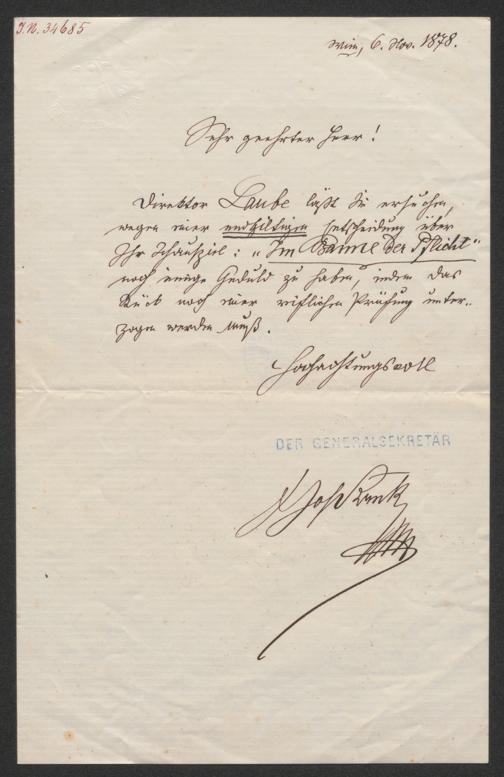 J.N. 34685
Wien, 6. Nov. 1878.
Sehr geehrter Herr!
Direktor Laube läßt Sie ersuchen,
wegen einer endgiltigen Entscheidung über
Ihr Schauspiel: „Im Banne der Pflicht"
noch einige Geduld zu haben, indem das
Stück noch einer reiflichen Prüfung unter-
zogen werden muß.
Hochachtungsvoll
DER GENERALSEKRETÄR